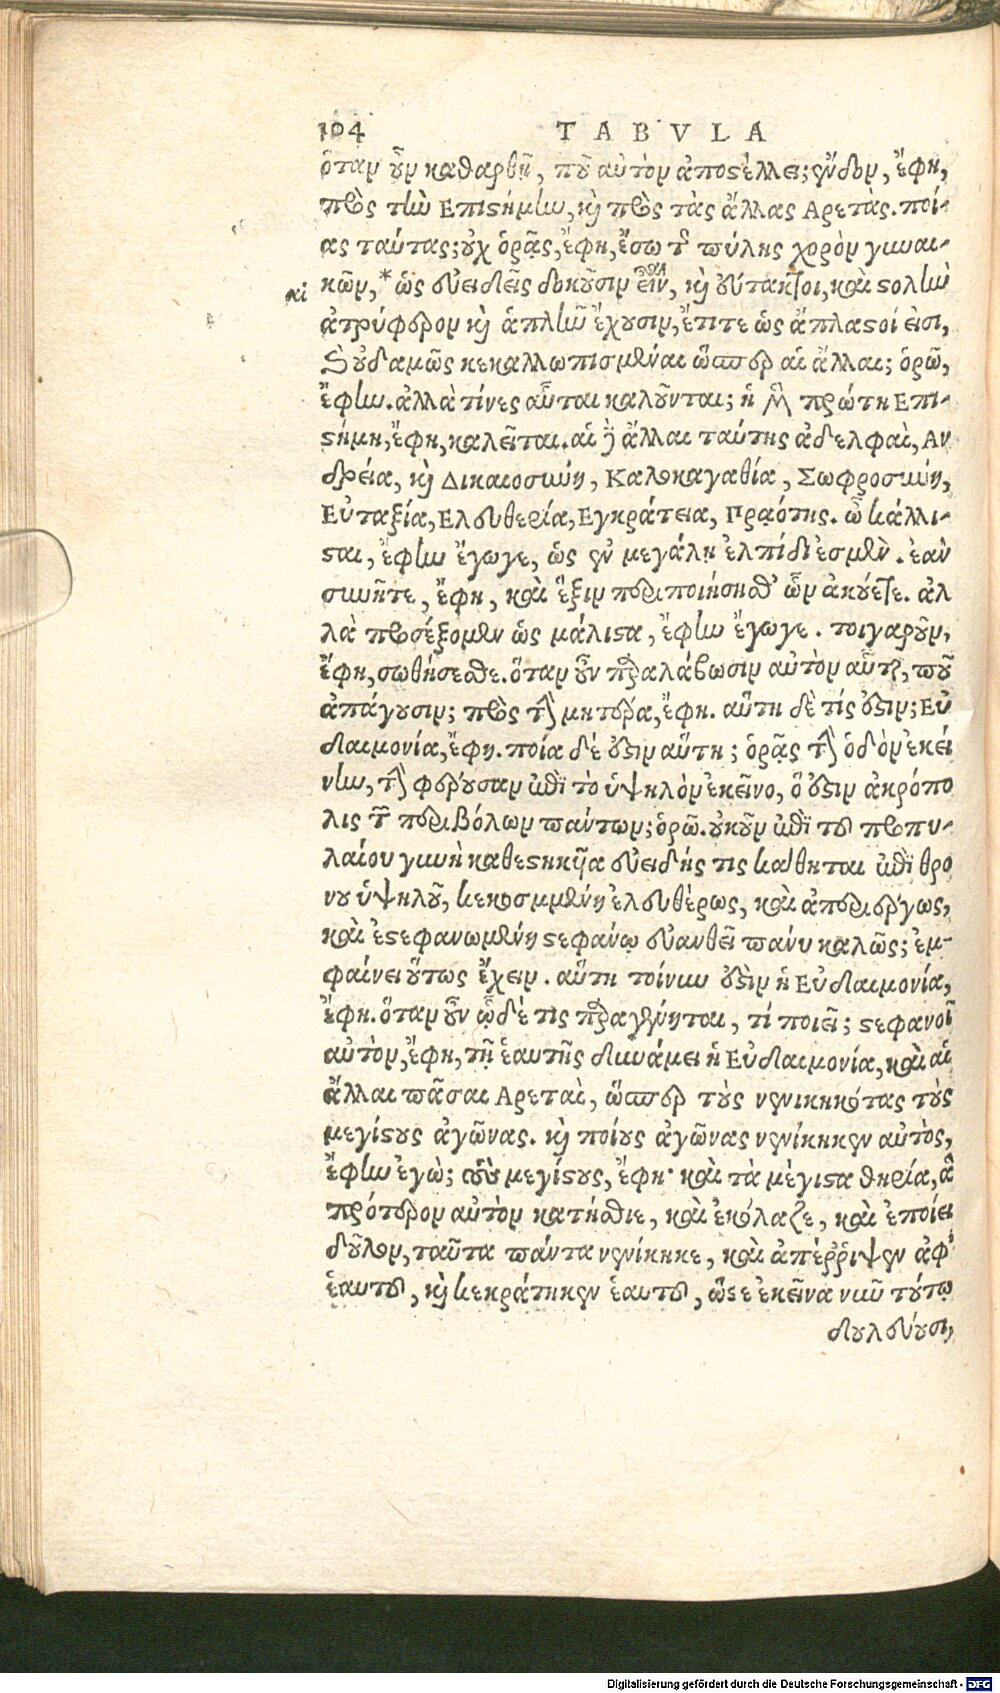 104 TABVLA
ὅταν οὖν καθαρθῇ, ποῦ αὐτὸν ἀποστέλλει; ἔνδον, ἔφη,
πρὸς τὴν Επιστήμην, καὶ πρὸς τὰς ἄλλας Αρετὰς. ποί-
ας ταύτας; οὐχ ὁρᾷς, ἔφη, ἔσω τῆς πύλης χορὸν γυναι-
αἱ κῶν, * ὡς εὐειδεῖς δοκοῦσιν εἶναι, καὶ εὔτακτοι, καὶ στολὴν
ἀτρύφερον καὶ ἁπλῆν ἔχουσιν, ἔτι τε ὡς ἄπλαστοί εἰσι,
καὶ οὐδαμῶς κεκαλλωπισμέναι ὥσπερ αἱ ἄλλαι; ὁρῶ,
ἔφην. ἀλλὰ τίνες αὗται καλοῦνται; ἡ μὲν πρώτη Επι-
στήμη, ἔφη, καλεῖται. αἱ δὲ ἄλλαι ταύτης ἀδελφαὶ, Αν
δρεία, καὶ Δικαιοσύνη, Καλοκαγαθία, Σωφροσύνη,
Εὐταξία, Ελευθερία, Εγκράτεια, Πραότης. ὦ κάλλι-
σται, ἔφην ἔγωγε, ὡς ἐν μεγάλῃ ἐλπίδι ἐσμέν. ἐὰν
συνῆτε, ἔφη, καὶ ἕξιν περιποιήσησθ' ὧν ἀκούετε. ἀλ
λὰ προσέξομεν ὡς μάλιστα, ἔφην ἔγωγε. τοιγαροῦν,
ἔφη, σωθήσεσθε. ὅταν οὖν παραλάβωσιν αὐτὸν αὗται, ποῦ
ἀπάγουσιν; πρὸς τὴν μητέρα, ἔφη. αὕτη δὲ τίς ἐστιν; Εὐ
δαιμονία, ἔφη. ποία δέ ἐστιν αὕτη; ὁρᾷς τὴν ὁδὸν ἐκεί
νην, τὴν φέρουσαν ἐπὶ τὸ ὑψηλὸν ἐκεῖνο, ὅ ἐστιν ἀκρόπο
λις τῶν περιβόλων πάντων; ὁρῶ. οὐκοῦν ἐπὶ τοῦ προπυ-
λαίου γυνὴ καθεστηκυῖα εὐειδής τις κάθηται ἐπὶ θρό
νου ὑψηλοῦ, κεκοσμημένη ἐλευθέρως, καὶ ἀπεριέργως,
καὶ ἐστεφανωμένη στεφάνῳ εὐανθεῖ πάνυ καλῶς; ἐμ-
φαίνει οὕτως ἔχειν. αὕτη τοίνυν ἐστὶν ἡ Εὐδαιμονία,
ἔφη. ὅταν οὖν ὧδέ τις παραγένηται, τί ποιεῖ; στεφανοῖ
αὐτὸν, ἔφη, τῇ ἑαυτῆς δυνάμει ἡ Εὐδαιμονία, καὶ αἱ
ἄλλαι πᾶσαι Αρεταὶ, ὥσπερ τοὺς νενικηκότας τοὺς
μεγίστους ἀγῶνας. καὶ ποίους ἀγῶνας νενίκηκεν αὐτὸς,
ἔφην ἐγὼ; τοὺς μεγίστους, ἔφη· καὶ τὰ μέγιστα θηρία, ἃ
πρότερον αὐτὸν κατήσθιε, καὶ ἐκόλαζε, καὶ ἐποίει
δοῦλον, ταῦτα πάντα νενίκηκε, καὶ ἀπέῤῥιψεν ἀφ'
ἑαυτοῦ, καὶ κεκράτηκεν ἑαυτοῦ, ὥστε ἐκεῖνα νῦν τούτῳ
δουλεύουσι,
Digitalisierung gefördert durch die Deutsche Forschungsgemeinschaft - DFG